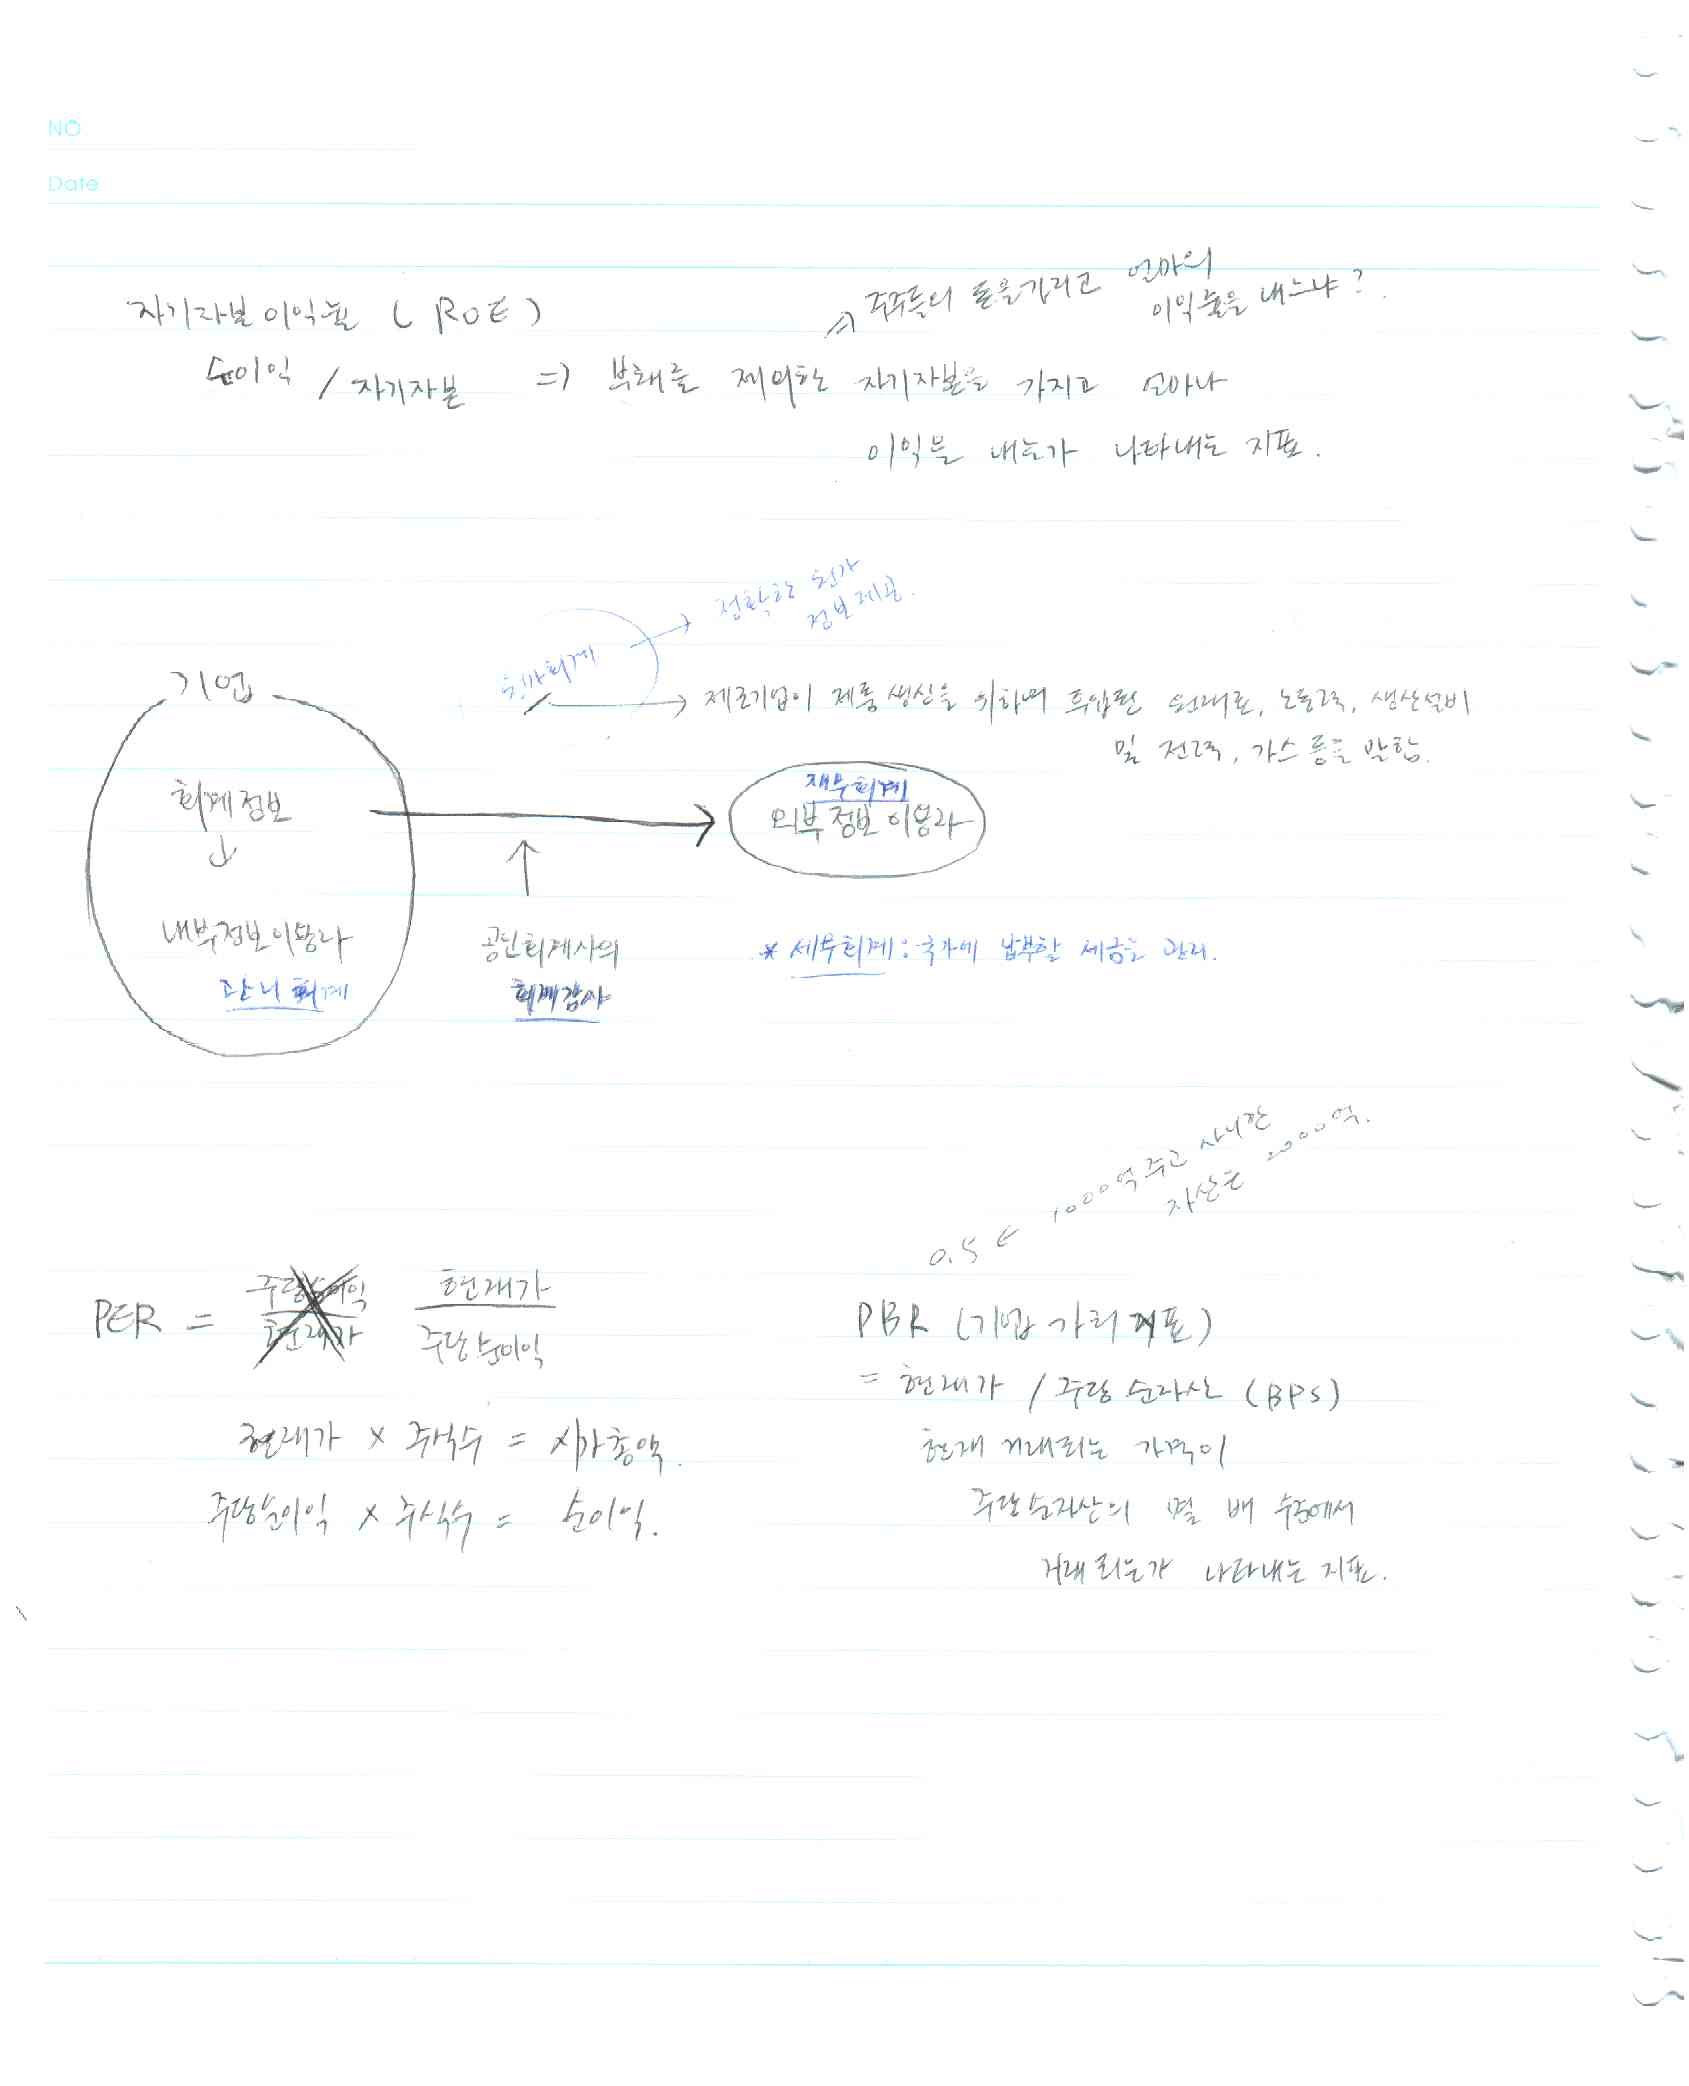 NO
Date
⇒ 주주들의 돈을 가지고 얼마의
이익률을 내느냐?
자기자본이익률 (ROE)
순이익 / 자기자본 ⇒ 부채를 제외한 자기자본을 가지고 얼마나
이익을 내는가 나타내는 지표.
원가회계 → 정확한 원가
정보제공.
→ 제조기업이 제품생산을 위하여 투입된 원재료, 노동력, 생산설비
및 전력, 가스 등을 말함.
기업
회계정보
↓
내부정보이용자
관리회계
↑
공인회계사의
회계감사
재무회계
외부정보이용자
* 세무회계: 국가에 납부할 세금을 관리.
PER = 주당순이익/현재가 현재가/주당순이익
현재가 × 주식수 = 시가총액.
주당순이익 × 주식수 = 순이익.
0.5 ← 1000억 주고 사니깐
자산은 2000억.
PBR (기업가치지표)
= 현재가 / 주당순자산 (BPS)
현재 거래되는 가격이
주당순자산의 몇 배 수준에서
거래되는가 나타내는 지표.